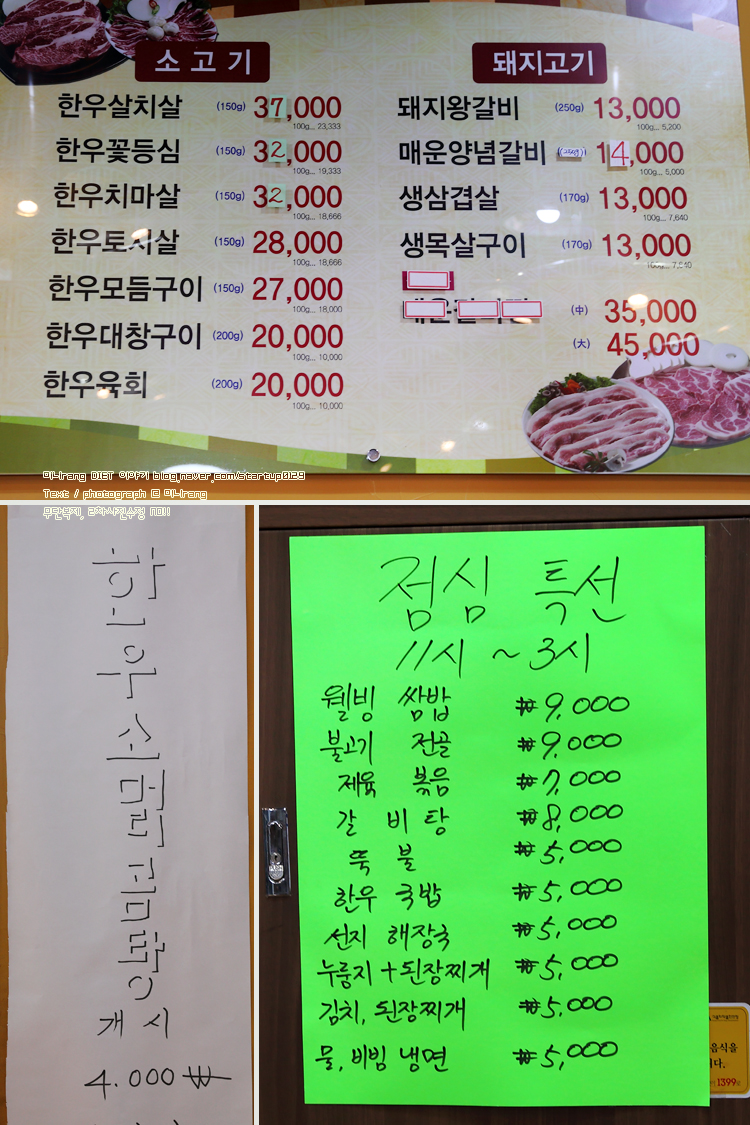 소고기
한우살치살 (150g) 37,000
100g... 23,333
한우꽃등심 (150g) 32,000
100g... 19,333
한우치마살 (150g) 32,000
100g... 18,666
한우토시살 (150g) 28,000
100g... 18,666
한우모듬구이 (150g) 27,000
100g... 18,000
한우대창구이 (200g) 20,000
100g... 10,000
한우육회 (200g) 20,000
100g... 10,000
돼지고기
돼지왕갈비 (250g) 13,000
100g... 5,200
매운양념갈비 14,000
100g... 5,000
생삼겹살 (170g) 13,000
100g... 7,640
생목살구이 (170g) 13,000
100g... 7,640
(中) 35,000
(大) 45,000
미니rang DIET 이야기 blog.naver.com/startup0129
Text / photograph © 미니rang
무단복제, 2차사진수정 NO!!
한우
개시
4.000₩
점심 특선
11시 ~ 3시
웰빙 쌈밥 ₩9,000
불고기 전골 ₩9,000
제육 볶음 ₩7,000
갈비탕 ₩8,000
뚝불 ₩5,000
한우 국밥 ₩5,000
선지 해장국 ₩5,000
누룽지+된장찌개 ₩5,000
김치, 된장찌개 ₩5,000
물, 비빔 냉면 ₩5,000
음식을
1399